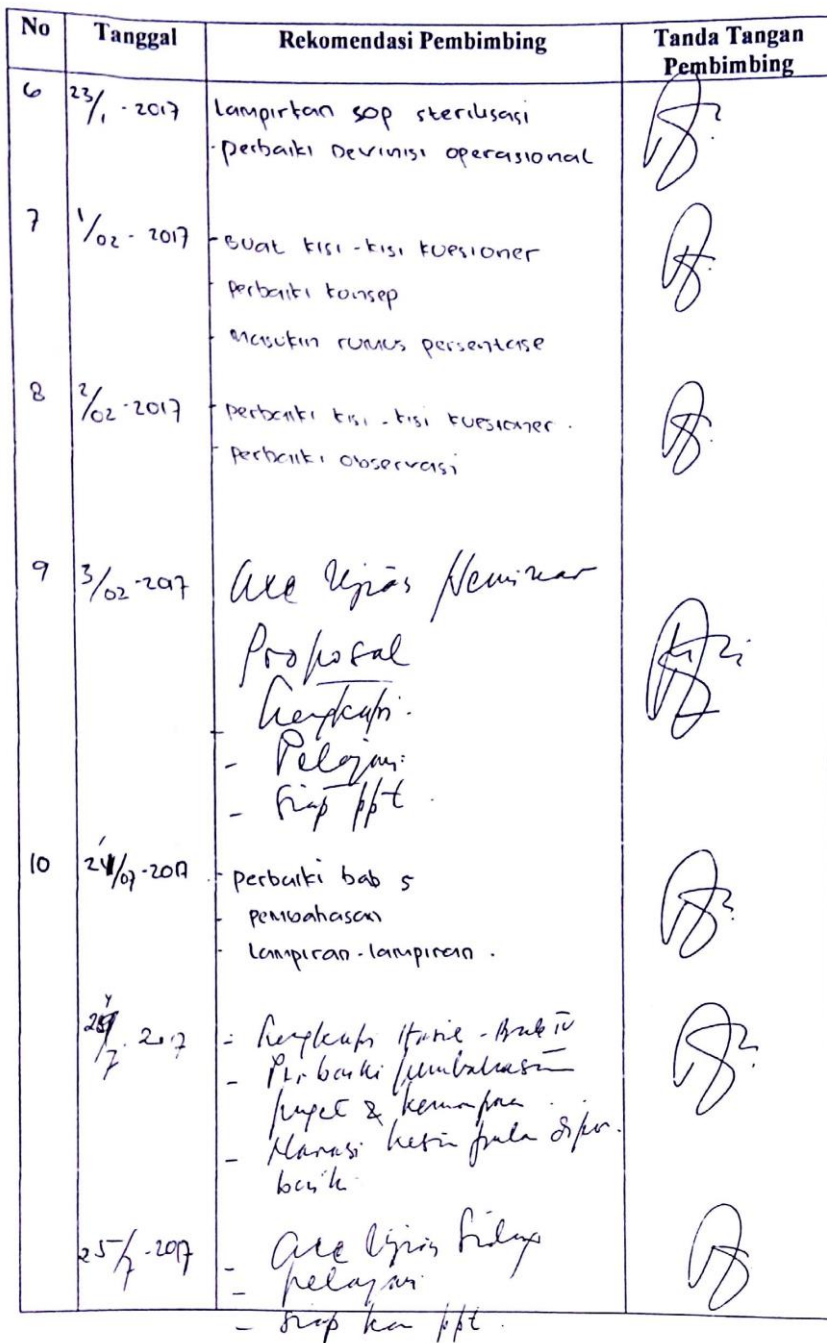 No Tanggal Rekomendasi Pembimbing Tanda Tangan Pembimbing
6 23/1 - 2017 Lampirtan SOP sterilisasi
- perbaiki Devinisi operasional
7 1/02 - 2017 - Buat kisi - kisi kuesioner
- perbaiki konsep
- masukin rumus persentase
8 2/02 - 2017 - perbaiki kisi - kisi kuesioner.
- perbaiki observasi
9 3/02 - 2017 acc Ujian Seminar
Proposal
- Lengkapi.
- Pelajari
- Siap ppt.
10 24/07 - 2017 - perbaiki bab 5
- pembahasan
- Lampiran - lampiran.
7 2017 - Lengkapi Hasil - Bab IV
- Perbaiki pembahasan
&
- Narasi
baik
25/7 - 2017 - acc Ujian Sidang
- pelajari
- Siap kan ppt.